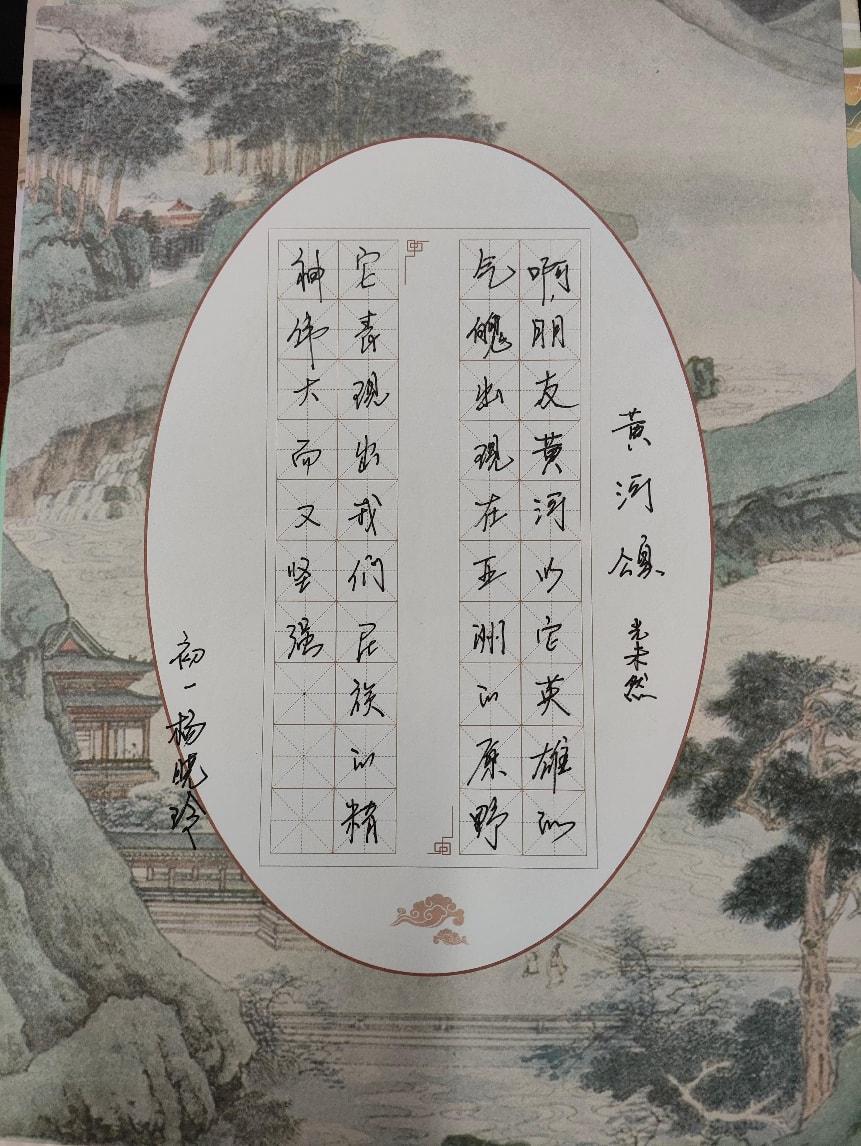 黄河颂 光未然
啊,朋友黄河以它英雄的
气魄出现在亚洲的原野
它表现出我们民族的精
神伟大而又坚强
初一 杨晓玲